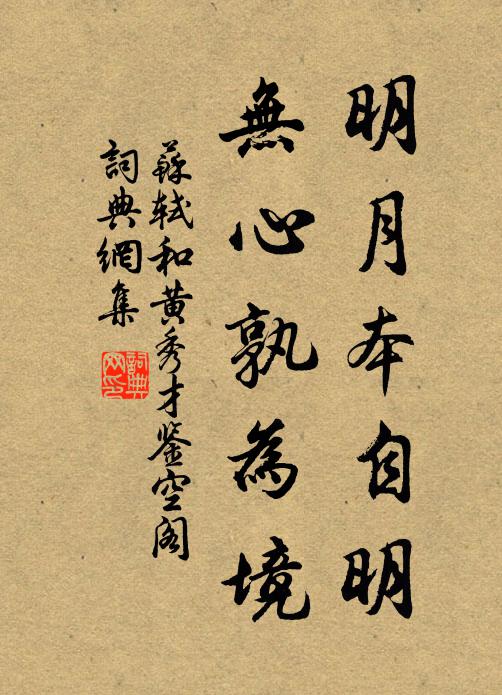 明月本自明
無心孰為境
蘇軾和黃秀才鉴空阁
詞典網集
詞典网印